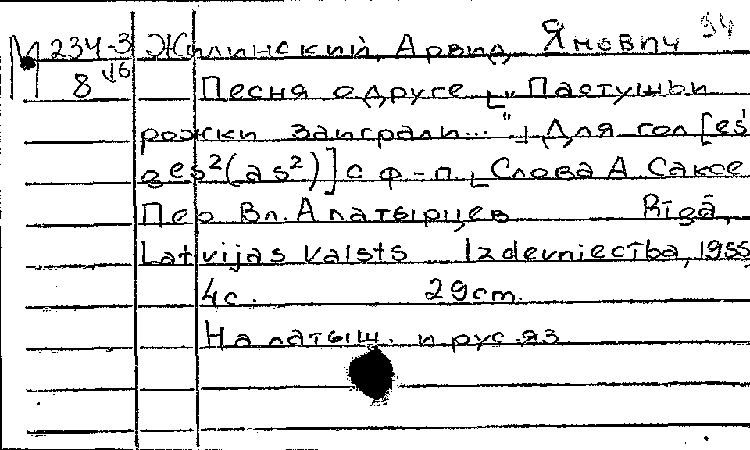 М 234-3 Жилинский, Арвид Янович 94
8 Песня о друге ["Пастушьи
рожки заиграли..."] Для гол [es'
ges²(as²)] с ф-п. [Слова А. Саксе
Пер Вл. Алатырцев Rīgā,
Latvijas Valsts Izdevniecība, 1955,
4с. 29cm.
На латыш. и рус. яз